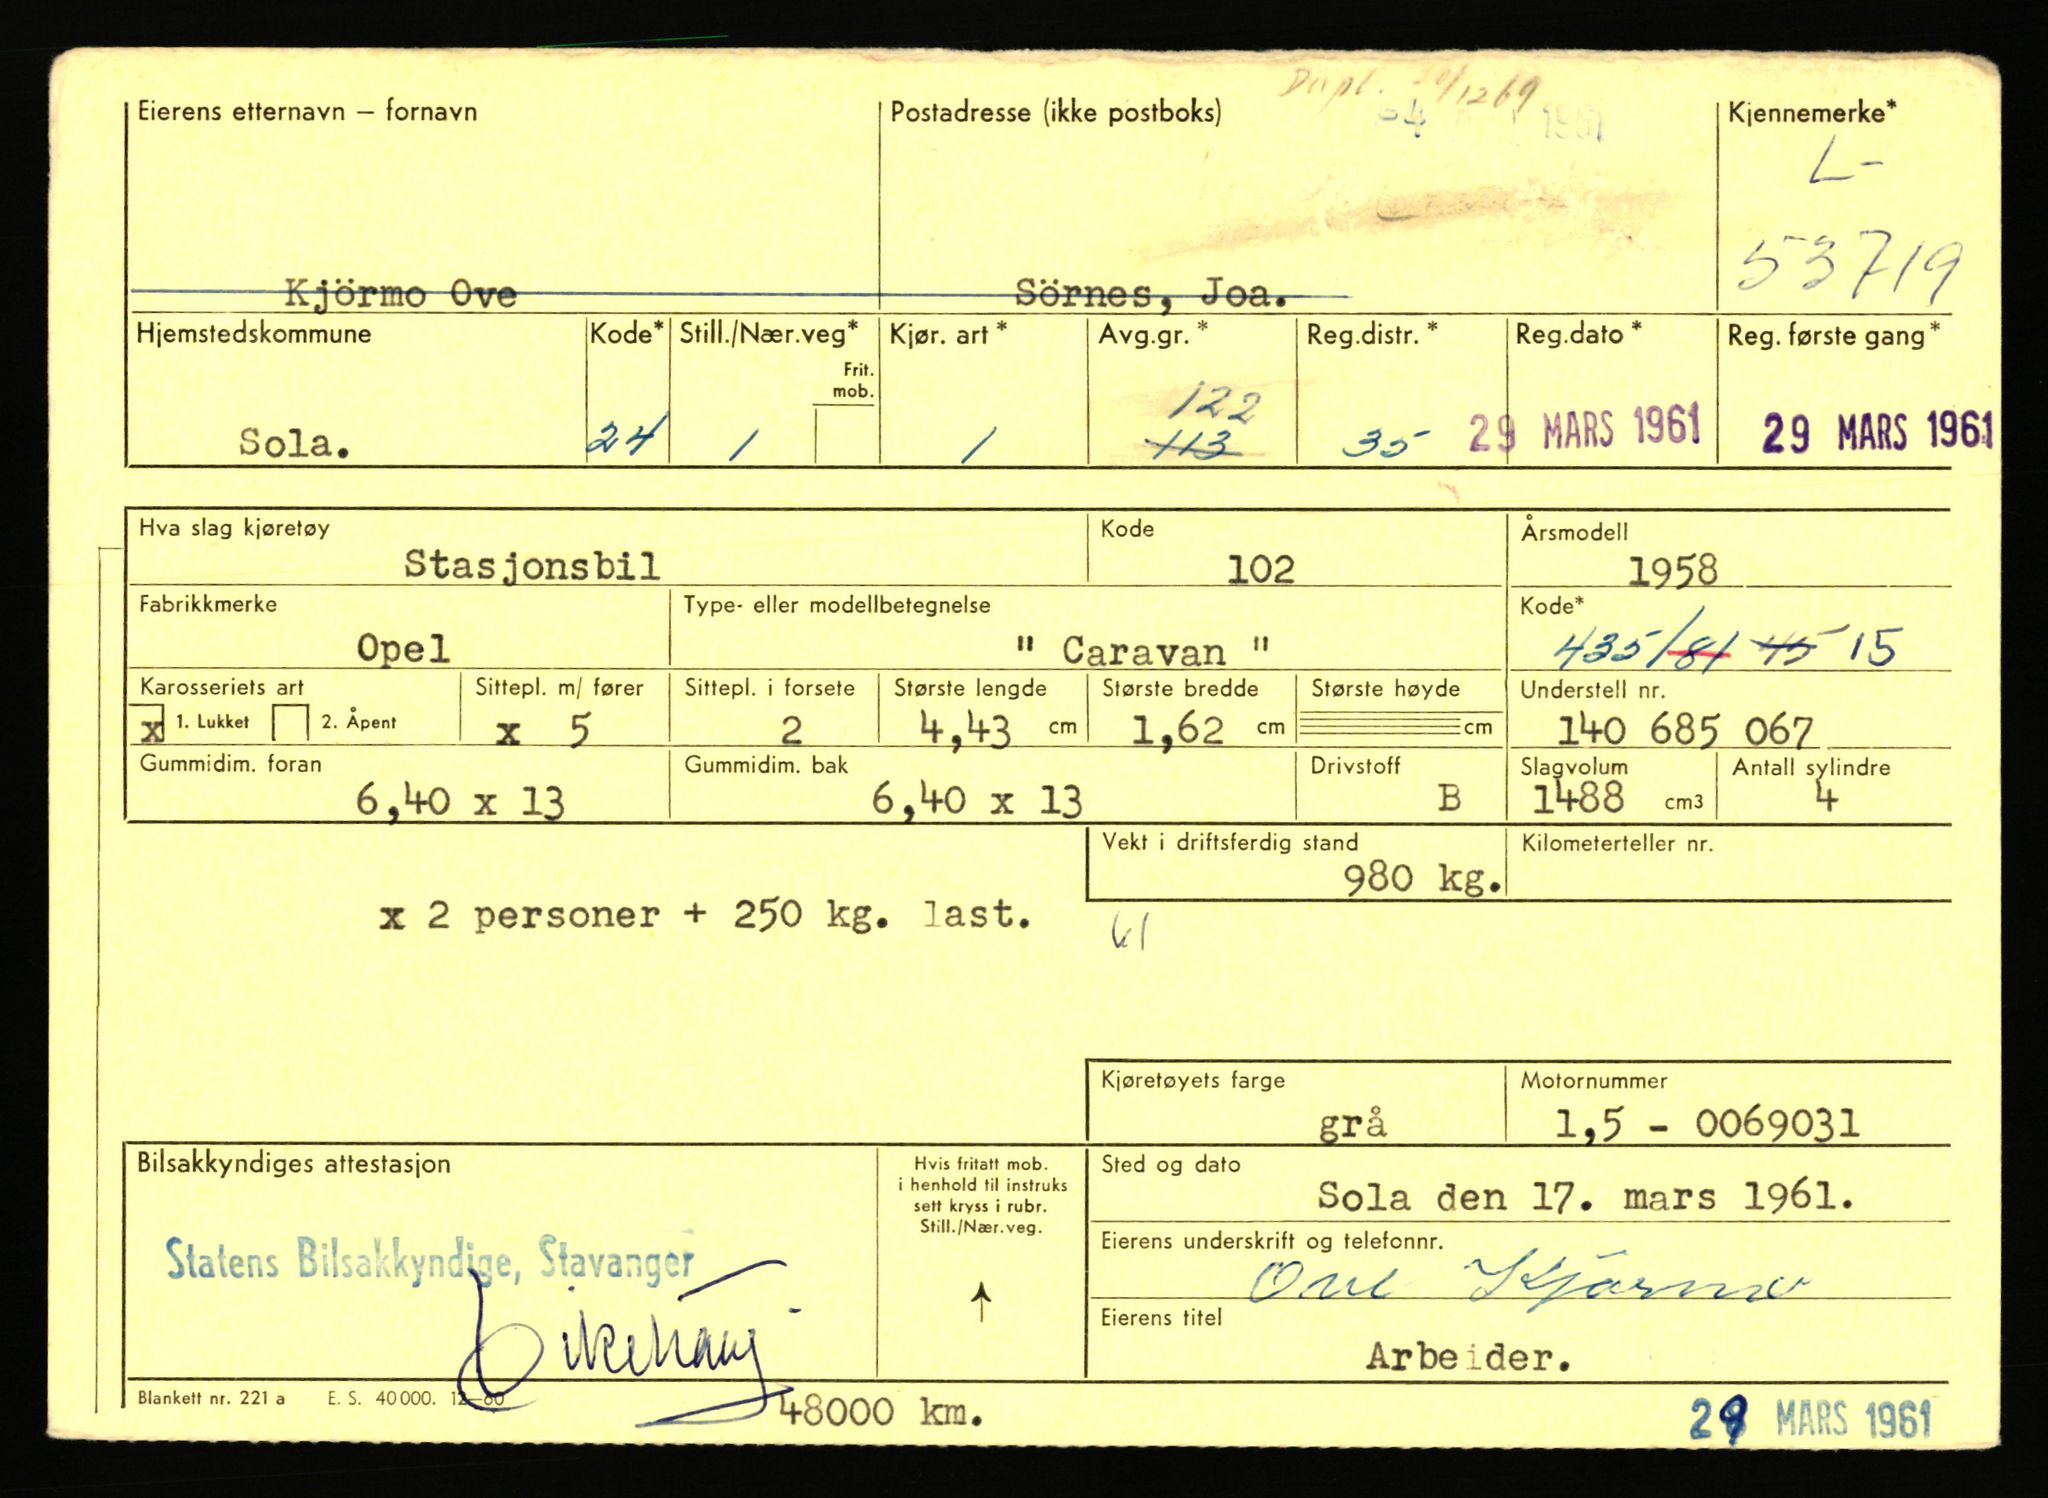 Dupl. 12 69
Eierens etternavn – fornavn Postadresse (ikke postboks) 1961 Kjennemerke*
L-
53719
Kjörmo Ove Sörnes, Joa.
Hjemstedskommune Kode* Still./Nær.veg* Kjør. art * Avg.gr. * Reg.distr. * Reg.dato * Reg. første gang *
Frit. mob.
122
Sola. 24 1 1 113 35 29 MARS 1961 29 MARS 1961
Hva slag kjøretøy Kode Årsmodell
Stasjonsbil 102 1958
Fabrikkmerke Type- eller modellbetegnelse Kode*
Opel " Caravan " 435/81 45 15
Karosseriets art Sittepl. m/ fører Sittepl. i forsete Største lengde Største bredde Største høyde Understell nr.
x 1. Lukket 2. Åpent x 5 2 4,43 cm 1,62 cm cm 140 685 067
Gummidim. foran Gummidim. bak Drivstoff Slagvolum Antall sylindre
6,40 x 13 6,40 x 13 B 1488 cm3 4
Vekt i driftsferdig stand Kilometerteller nr.
980 kg.
x 2 personer + 250 kg. last. 61
Kjøretøyets farge Motornummer
grå 1,5 - 0069031
Bilsakkyndiges attestasjon Hvis fritatt mob. Sted og dato
i henhold til instruks
sett kryss i rubr.
Still./Nær.veg.
Sola den 17. mars 1961.
Eierens underskrift og telefonnr.
Statens Bilsakkyndige, Stavanger Ove Kjörmo
Eierens titel
Arbeider.
Blankett nr. 221 a E. S. 40 000. 12—60 48000 km. MARS 1961